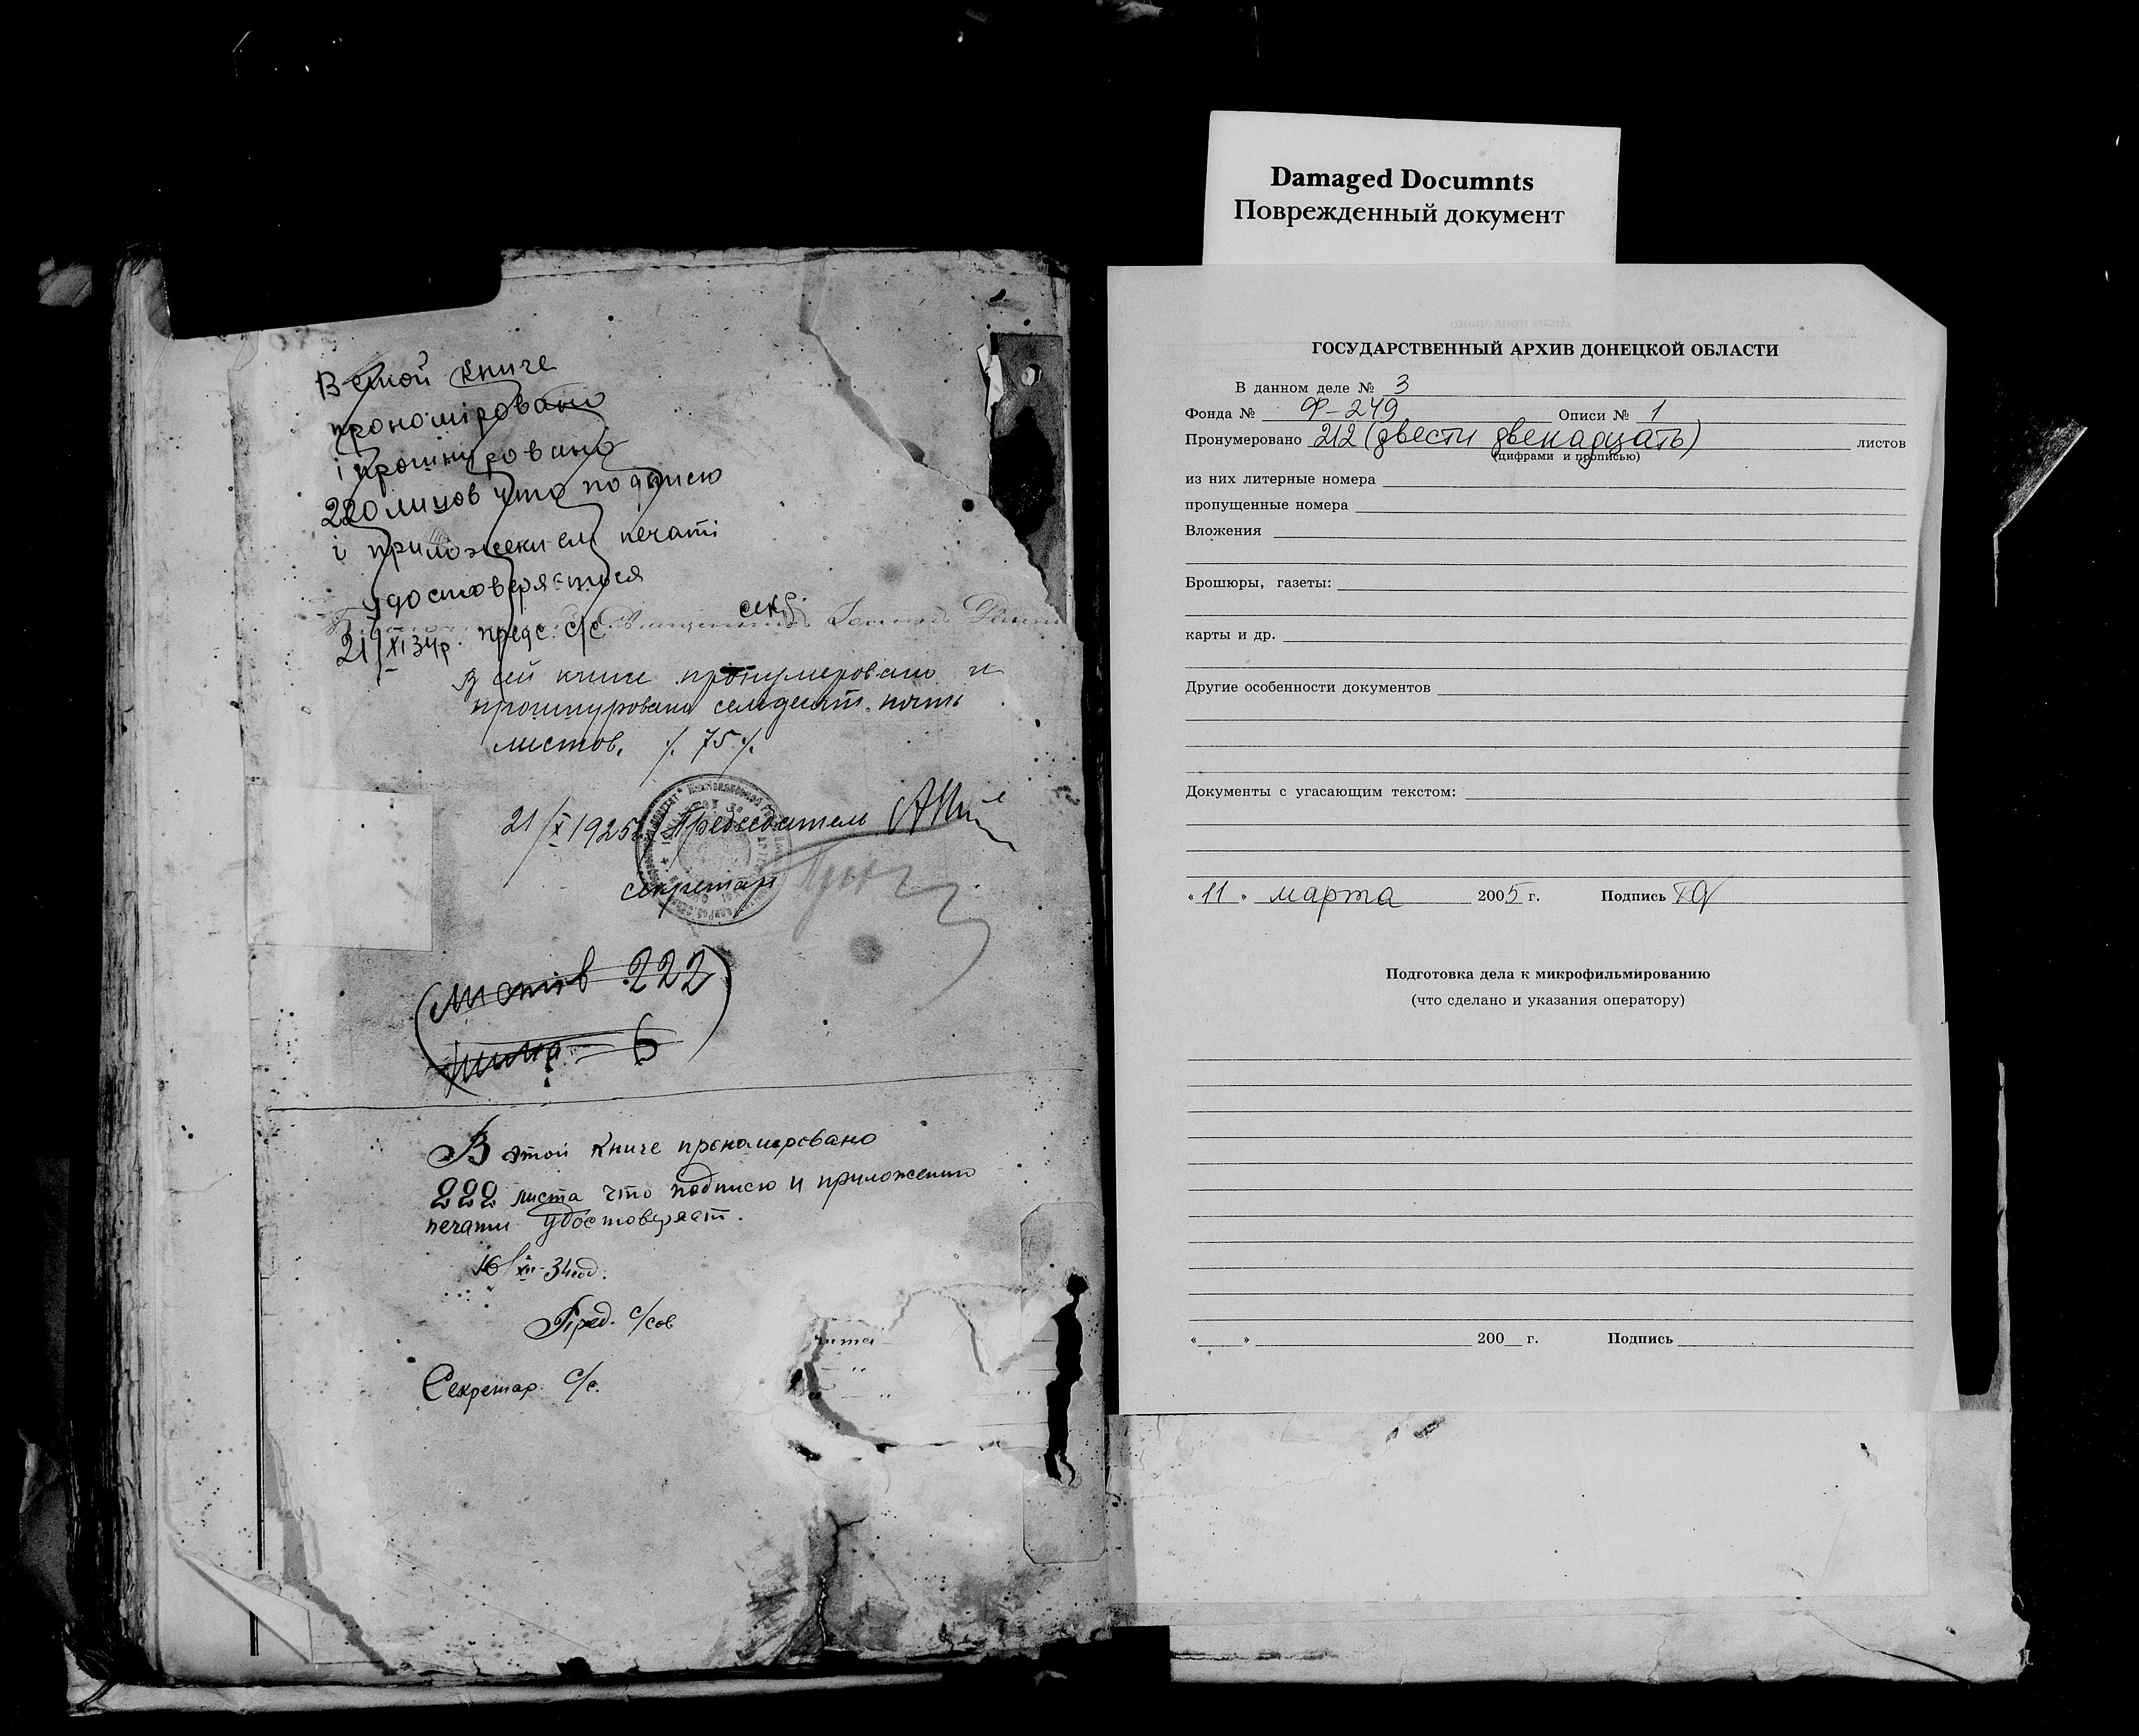 Damaged Documnts
Поврежденный документ
В этой книге
прономіровано
і прошнуровано
220 лицов что подписю
і приложением печаті
удостоверяется
21/XI 34р. предс. с/с секр.
В сей книге пронумеровано и
прошнуровано семдесят пять
листов. /. 75 /.
21/X 1925 Председатель
секретарь
(листов 222)
6
В этой книге прономеровано
222 листа что подписю и приложении
печати удостоверяет.
16/XII-34год.
Пред. с/сов
Секретар. с/с.
ГОСУДАРСТВЕННЫЙ АРХИВ ДОНЕЦКОЙ ОБЛАСТИ
В данном деле № 3
Фонда № Ф-249 Описи № 1
Пронумеровано 212 (двести двенадцать) листов
(цифрами и прописью)
из них литерные номера
пропущенные номера
Вложения
Брошюры, газеты:
карты и др.
Другие особенности документов
Документы с угасающим текстом:
«11» марта 2005 г. Подпись
Подготовка дела к микрофильмированию
(что сделано и указания оператору)
«___» 200__ г. Подпись